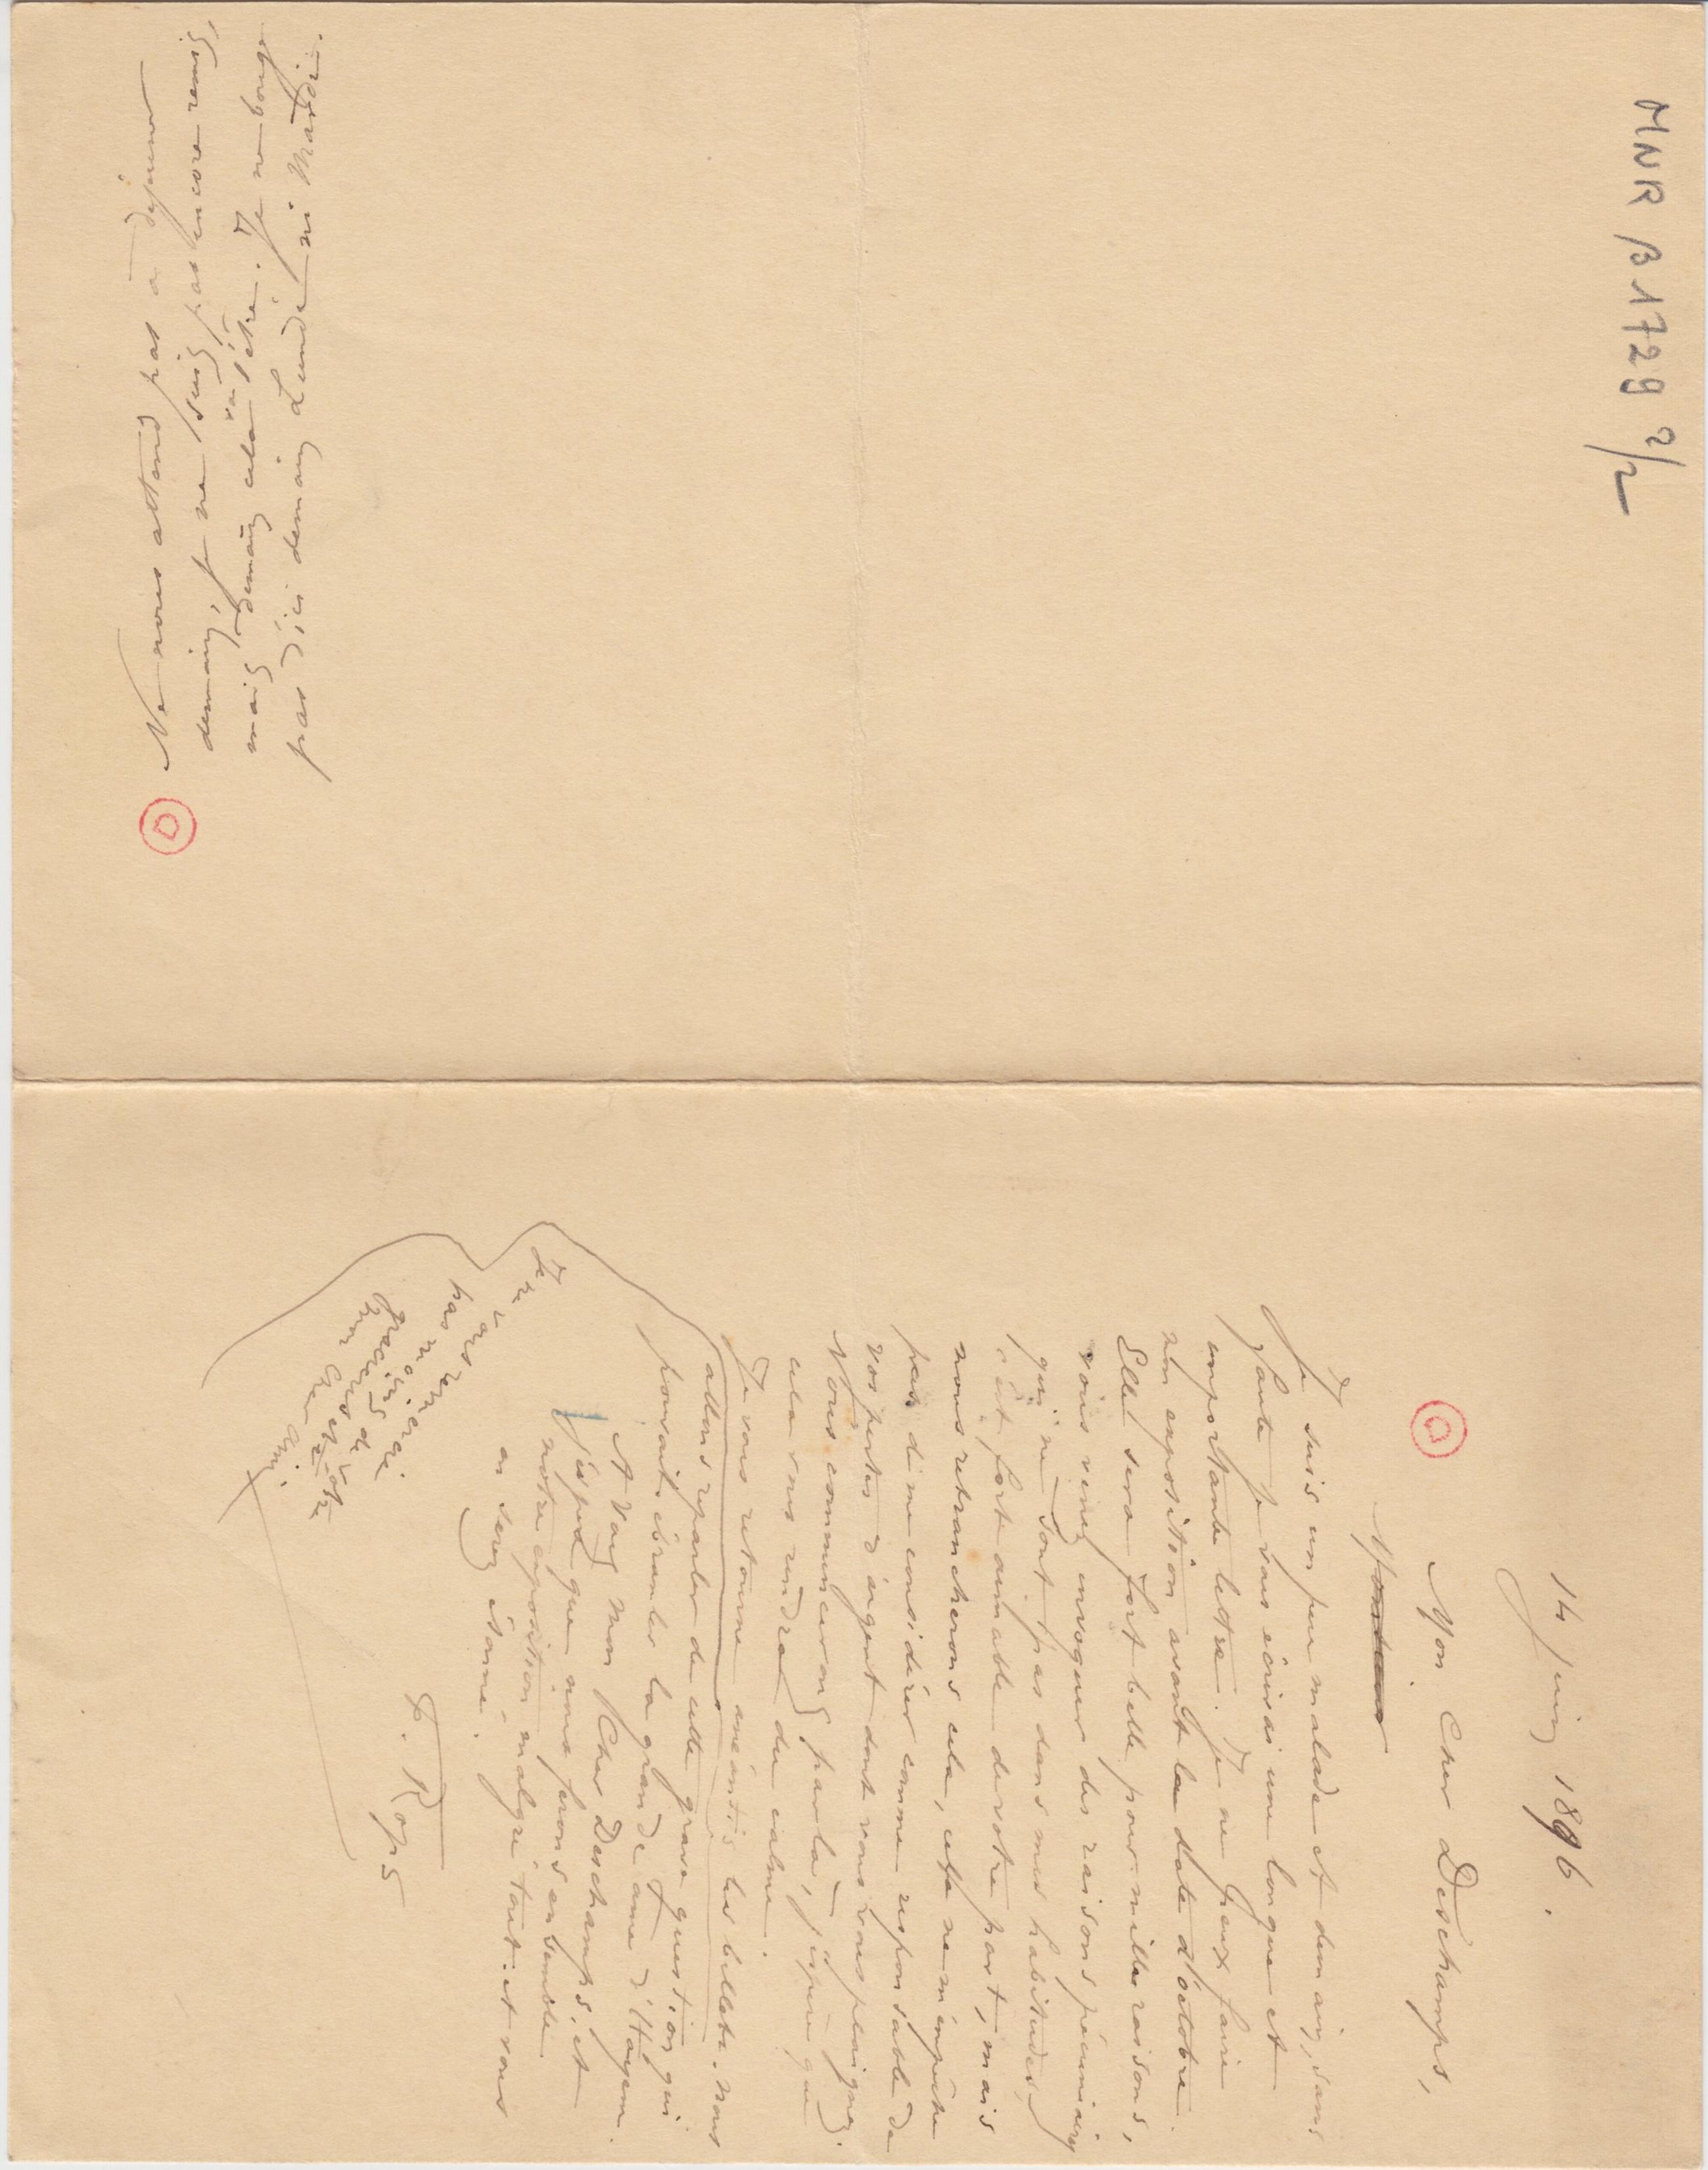 MNR B 1729 2/2
14 Juin 1896.
Mon Cher Deschamps,
Je suis un peu malade et demain, sans
faute je vous écrirai une longue et
importante lettre. Je ne peux faire
mon exposition avant la date d'octobre.
Elle sera fort belle pour mille raisons,
vous venez invoquer des raisons pécuniaires
qui ne sont pas dans mes habitudes,
c'est fort aimable de votre part, mais
nous retrancherons cela, cela ne m'empêche
pas de me considérer comme responsable de
vos pertes d'argent dont vous vous plaignez.
Nous commencerons par là, j'espère que
cela vous rendra du calme.
Je vous retourne anéantis les billets. Nous
allons reparler de cette grave question qui
pourrait ébranler la grande âme d'Hayem.
A Vous mon Cher Deschamps, et
j'espère que nous ferons ensemble
notre exposition malgré tout. et vous
en serez étonné.
F. Rops
Je ne
pas
de votre
Ne nous attend pas à déjeuner
demain, je ne suis pas encore remis,
mais demain cela va s'être. Je ne bouge
pas d'ici demain Lundi ni Mardi.